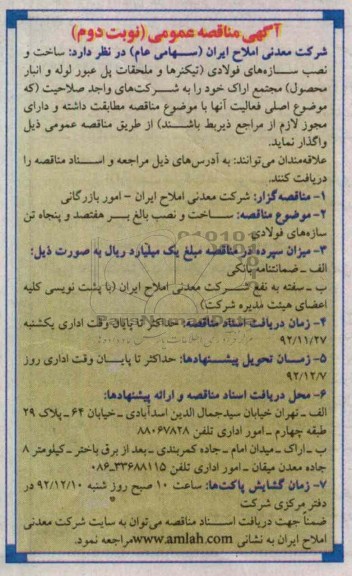 آگهی مناقصه عمومی (نوبت دوم)
شرکت معدنی املاح ایران (سهامی عام) در نظر دارد: ساخت و
نصب سازه‌های فولادی (تیکنرها و ملحقات پل عبور لوله و انبار
محصول) مجتمع اراک خود را به شرکت‌های واجد صلاحیت (که
موضوع اصلی فعالیت آنها با موضوع مناقصه مطابقت داشته و دارای
مجوز لازم از مراجع ذیربط باشند) از طریق مناقصه عمومی ذیل
واگذار نماید.
علاقه‌مندان می‌توانند: به آدرس‌های ذیل مراجعه و اسناد مناقصه را
دریافت کنند.
۱- مناقصه‌گزار: شرکت معدنی املاح ایران - امور بازرگانی
۲- موضوع مناقصه: ساخت و نصب بالغ بر هفتصد و پنجاه تن
سازه‌های فولادی
۳- میزان سپرده در مناقصه مبلغ یک میلیارد ریال به صورت ذیل:
الف - ضمانتنامه بانکی
ب - سفته به نفع شرکت معدنی املاح ایران (با پشت نویسی کلیه
اعضای هیئت مدیره شرکت)
۴- زمان دریافت اسناد مناقصه: حداکثر تا پایان وقت اداری یکشنبه
۹۲/۱۱/۲۷
۵- زمان تحویل پیشنهادها: حداکثر تا پایان وقت اداری روز
۹۲/۱۲/۷
۶- محل دریافت اسناد مناقصه و ارائه پیشنهادها:
الف - تهران خیابان سیدجمال الدین اسدآبادی - خیابان ۶۴ - پلاک ۲۹
طبقه چهارم - امور اداری تلفن ۸۸۰۶۷۸۲۸
ب - اراک - میدان امام - جاده کمربندی - بعد از برق باختر - کیلومتر ۸
جاده معدن میقان - امور اداری تلفن ۳۳۶۸۸۱۱۵-۰۸۶
۷- زمان گشایش پاکت‌ها: ساعت ۱۰ صبح روز شنبه ۹۲/۱۲/۱۰ در
دفتر مرکزی شرکت
ضمناً جهت دریافت اسناد مناقصه می‌توان به سایت شرکت معدنی
املاح ایران به نشانی www.amlah.com مراجعه نمود.